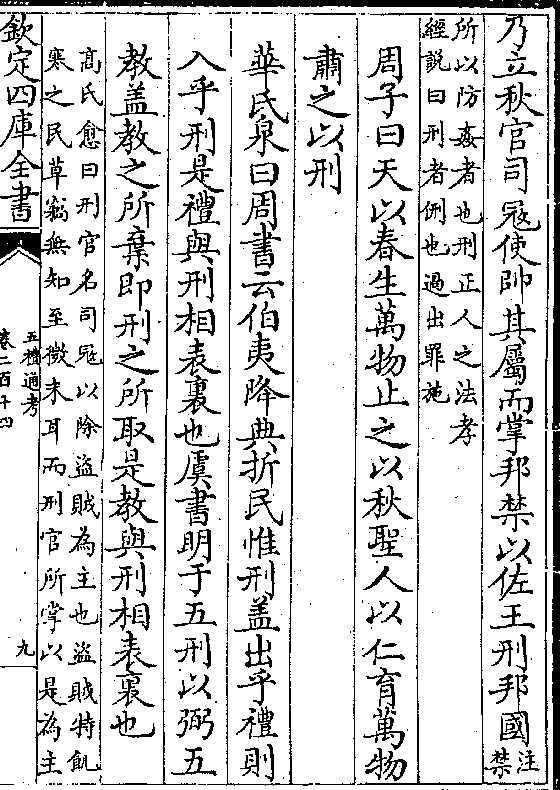 乃立秋官司冦使帥其屬而掌邦禁以佐王刑邦國注禁
所以防姦者也刑正人之法孝
經説曰刑者侀也過出罪施
周子曰天以春生萬物止之以秋聖人以仁育萬物
肅之以刑
華氏泉曰周書云伯夷降典折民惟刑盖出乎禮則
入乎刑是禮與刑相表裏也虞書明于五刑以弼五
教盖教之所棄即刑之所取是教與刑相表裏也
髙氏愈曰刑官名司冦以除盗賊為主也盗賊特飢
寒之民草竊無知至微末耳而刑官所掌以是為主
欽定四庫全書
五禮通考
卷二百十四
九